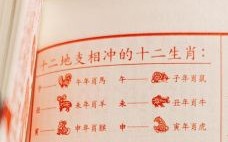 十二地支相冲的十二生肖:
子—— 午年肖馬 午—— 子年肖鼠
丑—— 未年肖羊 未—— 丑年肖牛
寅—— 申年肖猴 申—— 寅年肖虎